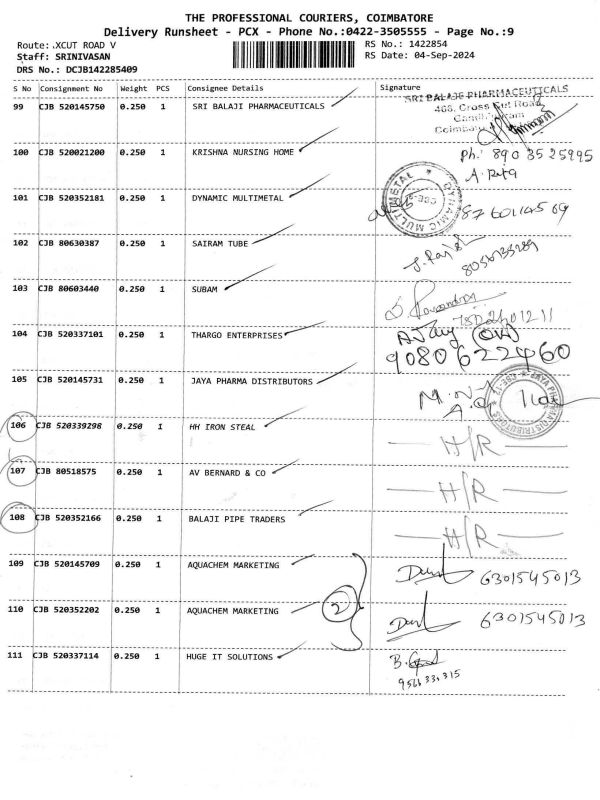 THE PROFESSIONAL COURIERS, COIMBATORE
Delivery Runsheet - PCX - Phone No.:0422-3505555 - Page No.:9
Route: .XCUT ROAD V RS No.: 1422854
Staff: SRINIVASAN RS Date: 04-Sep-2024
DRS No.: DCJB142285409
S No Consignment No Weight PCS Consignee Details Signature
99 CJB 520145750 0.250 1 SRI BALAJI PHARMACEUTICALS SRI BALAJI PHARMACEUTICALS
468, Cross Cut Road
100 CJB 520021200 0.250 1 KRISHNA NURSING HOME Ph: 8903525995
101 CJB 520352181 0.250 1 DYNAMIC MULTIMETAL DYNAMIC MULTIMETAL
102 CJB 80630387 0.250 1 SAIRAM TUBE
103 CJB 80603440 0.250 1 SUBAM
104 CJB 520337101 0.250 1 THARGO ENTERPRISES
9080622460
105 CJB 520145731 0.250 1 JAYA PHARMA DISTRIBUTORS
106 CJB 520339298 0.250 1 HH IRON STEAL H/R
107 CJB 80518575 0.250 1 AV BERNARD & CO H/R
108 CJB 520352166 0.250 1 BALAJI PIPE TRADERS H/R
109 CJB 520145709 0.250 1 AQUACHEM MARKETING 6301545013
2
110 CJB 520352202 0.250 1 AQUACHEM MARKETING 6301545013
111 CJB 520337114 0.250 1 HUGE IT SOLUTIONS